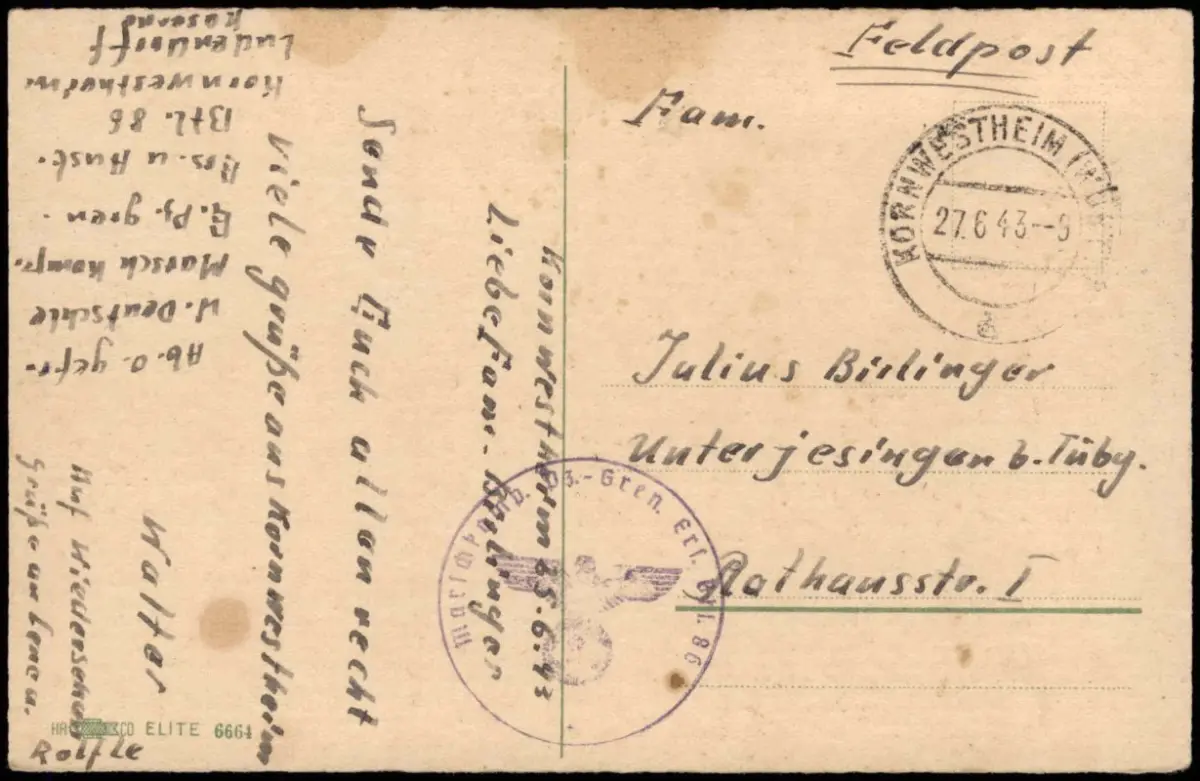 Feldpost
Fam.
KORNWESTHEIM (WÜ
27.6.43--9
a
Julius Birlinger
Unterjesingen b. Tübg.
Rathausstr. I
Marschkomp. Pz.-Gren. Ers. Btl. 86
Kornwestheim 25.6.43
Liebe Fam. Birlinger
Sende Euch allen recht
viele grüße aus Kornwestheim
Walter
Auf Wiedersehen
Grüße an
Rolfle
Ab. O. gefr.
W. Deutschle
Marsch Komp.
E. Pz. gren.
Ers. u Aust.
Btl. 86
Kornwestheim
Ludendorff
Kaserne
HA CO ELITE 6664